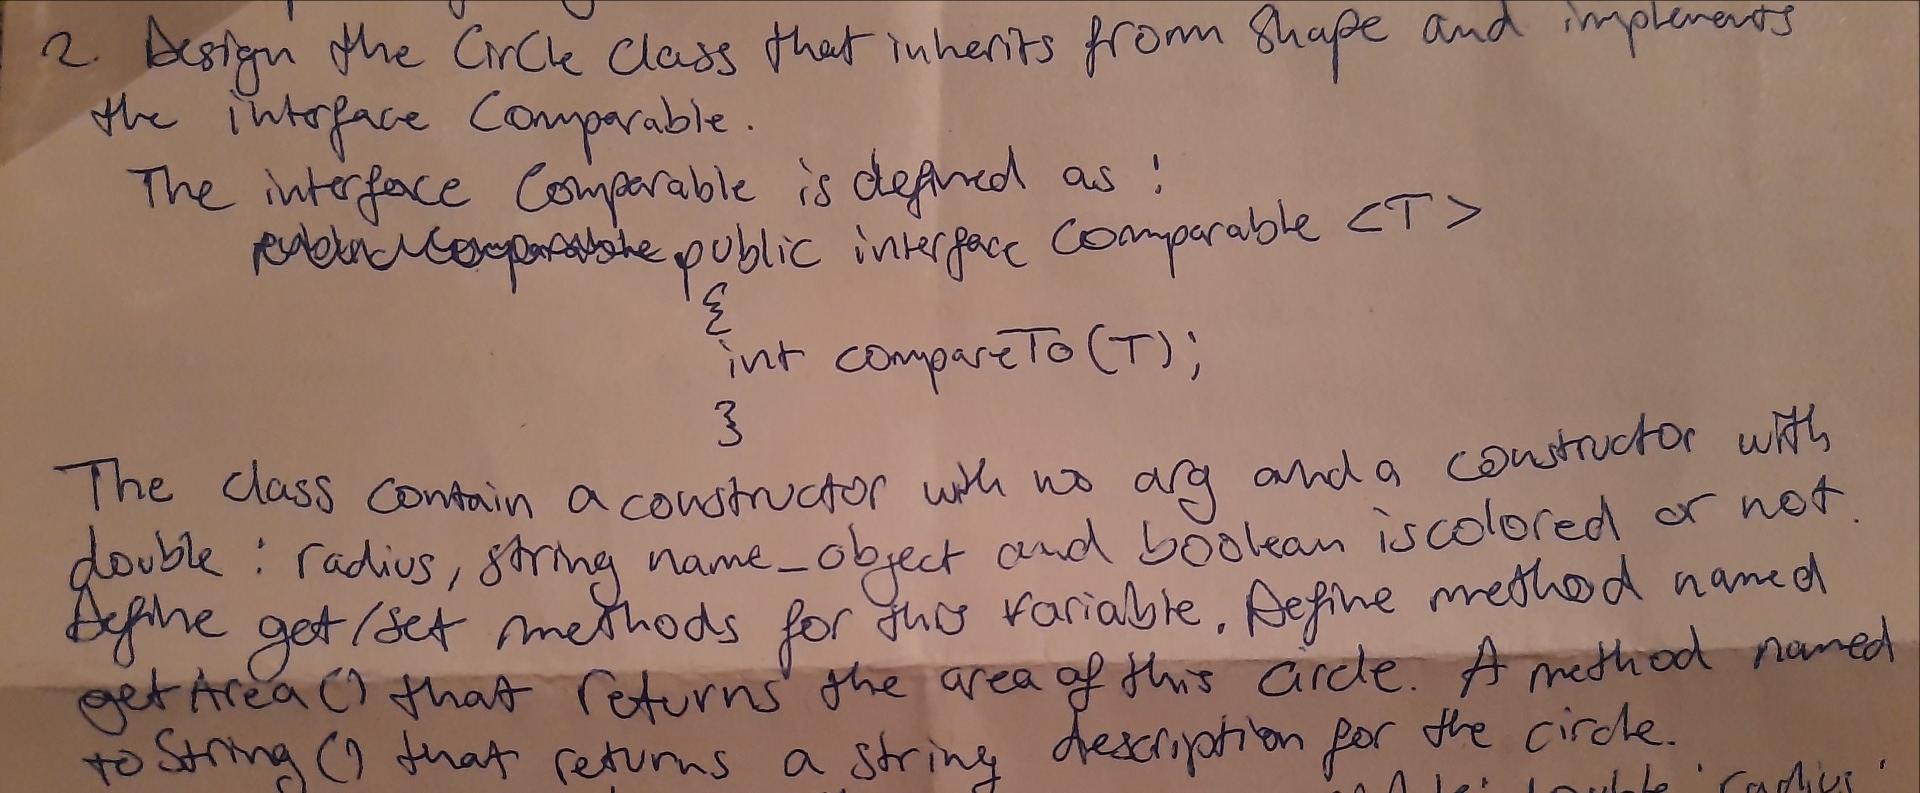 2. Design the Circle class that inherits from Shape and implements
the interface Comparable.
The interface Comparable is defined as :
public interface Comparable <T>
{
int compareTo(T);
}
The class contain a constructor with no arg and a constructor with
double : radius, string name_object and boolean iscolored or not.
Define get/set methods for this variable. Define method named
getArea() that returns the area of this circle. A method named
toString() that returns a string description for the circle.
double radius